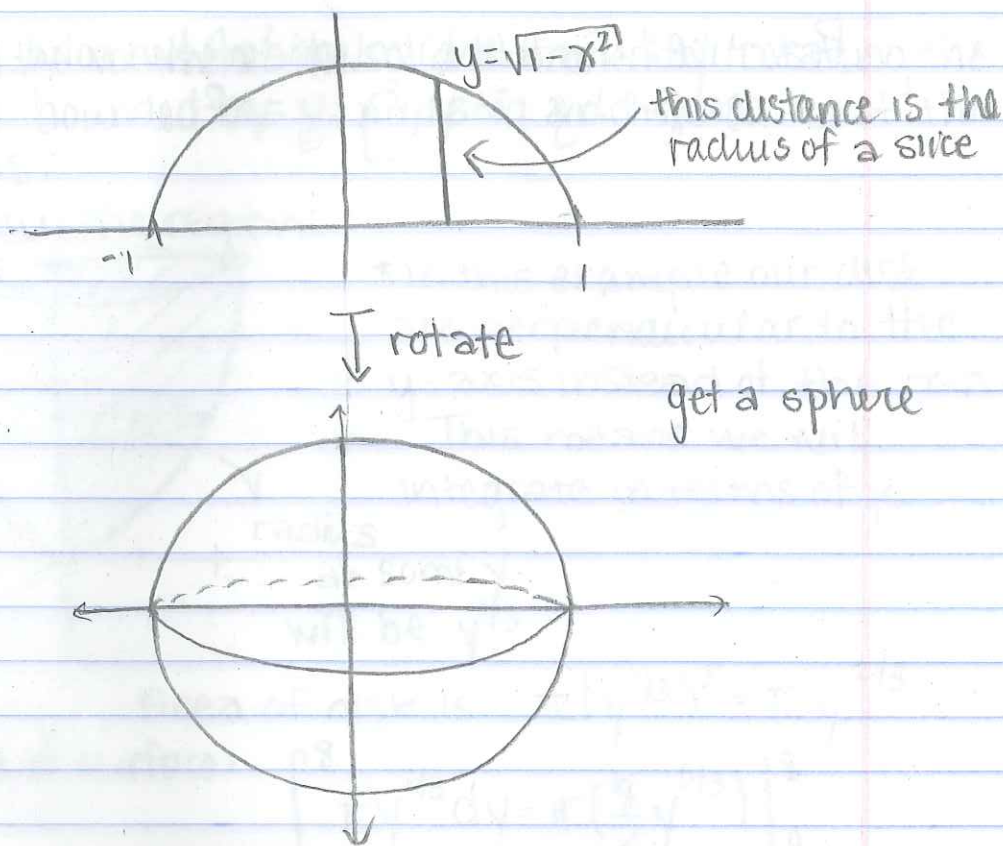 y=√1-x²
this distance is the
radius of a slice
-1
1
rotate
get a sphere